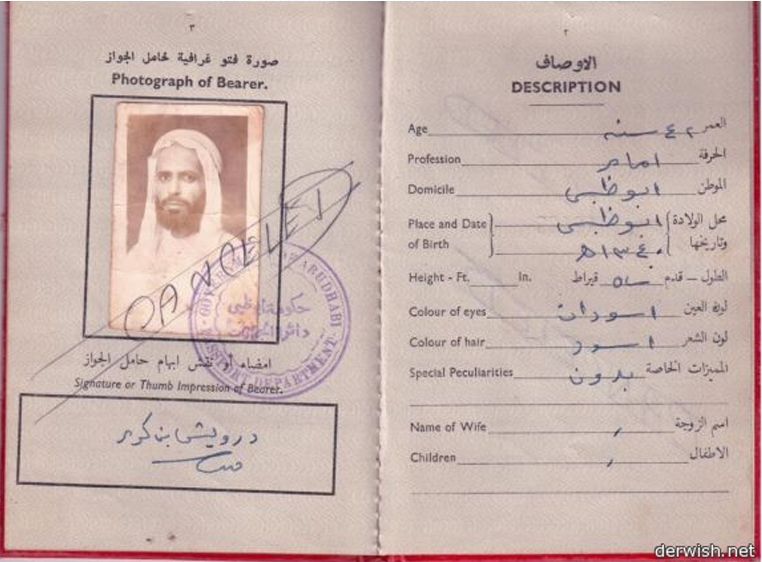 ٣
صورة فتو غرافية لحامل الجواز
Photograph of Bearer.
CANCELLED
GOVERNMENT OF ABUDHABI
حكومة ابوظبي
دائرة الجوازات
PASSPORT DEPARTMENT
امضاء أو نقش ابهام حامل الجواز
Signature or Thumb Impression of Bearer.
درويش بن كرم
٢
الاوصاف
DESCRIPTION
Age ٤٢ سنه العمر
Profession امام الحرفة
Domicile ابوظبي الموطن
Place and Date ابوظبي محل الولادة
of Birth ١٣٤٠هـ وتاريخها
Height - Ft. In. قيراط الطول - قدم
Colour of eyes اسودان لون العين
Colour of hair اسود لون الشعر
Special Peculiarities بدون المميزات الخاصة
Name of Wife اسم الزوجة
Children الاطفال
derwish.net